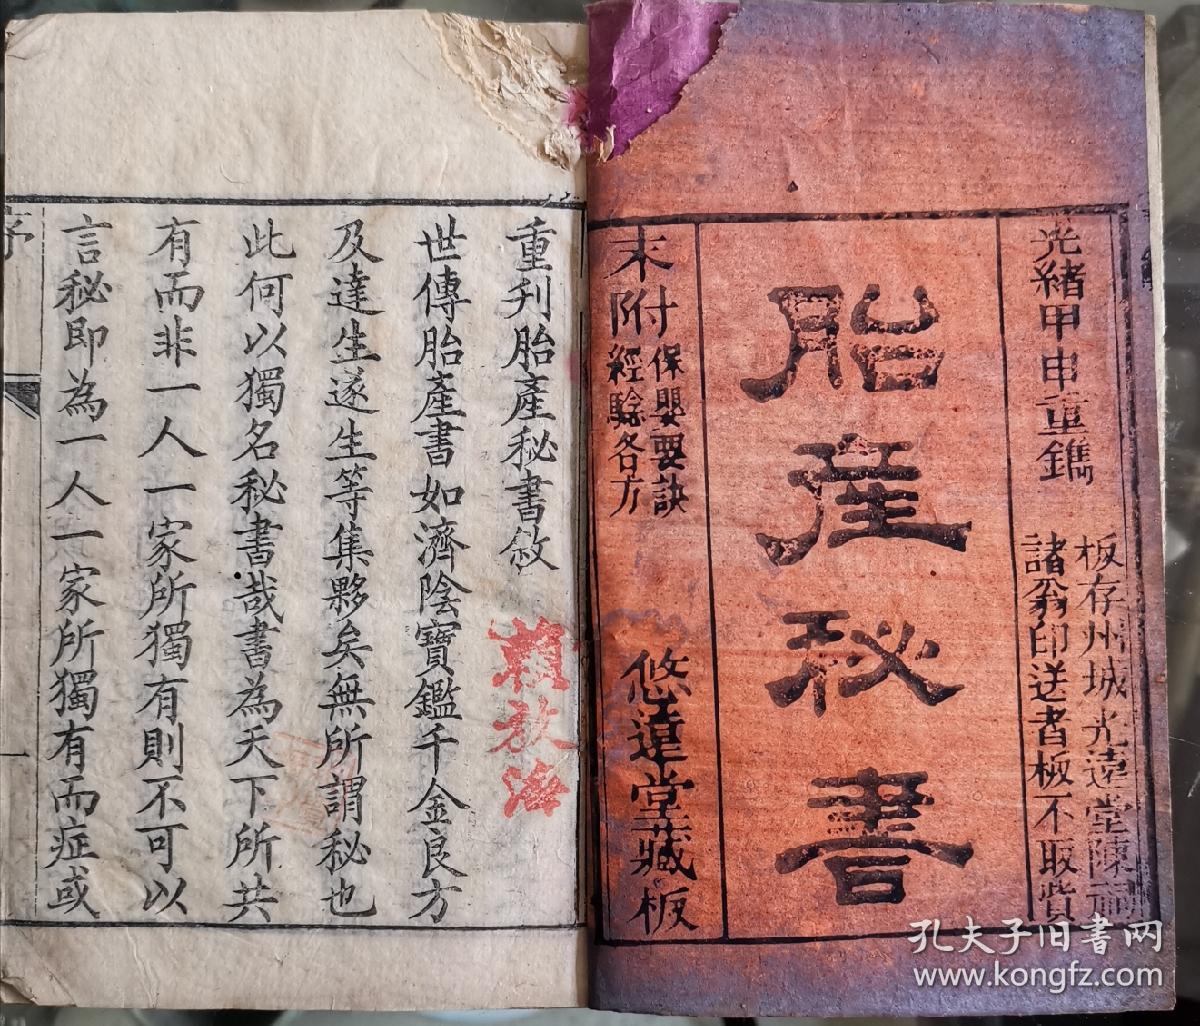 光緒甲申重鐫
板存州城光遠堂陳
諸翁印送者板不取費
胎產秘書
末附
保嬰要訣
經驗各方
悠遠堂藏板
重刋胎產秘書敘
世傳胎產書如濟陰寶鑑千金良方
及達生遂生等集夥矣無所謂秘也
此何以獨名秘書哉書為天下所共
有而非一人一家所獨有則不可以
言秘即為一人一家所獨有而症或
序
一
孔夫子旧书网
www.kongfz.com